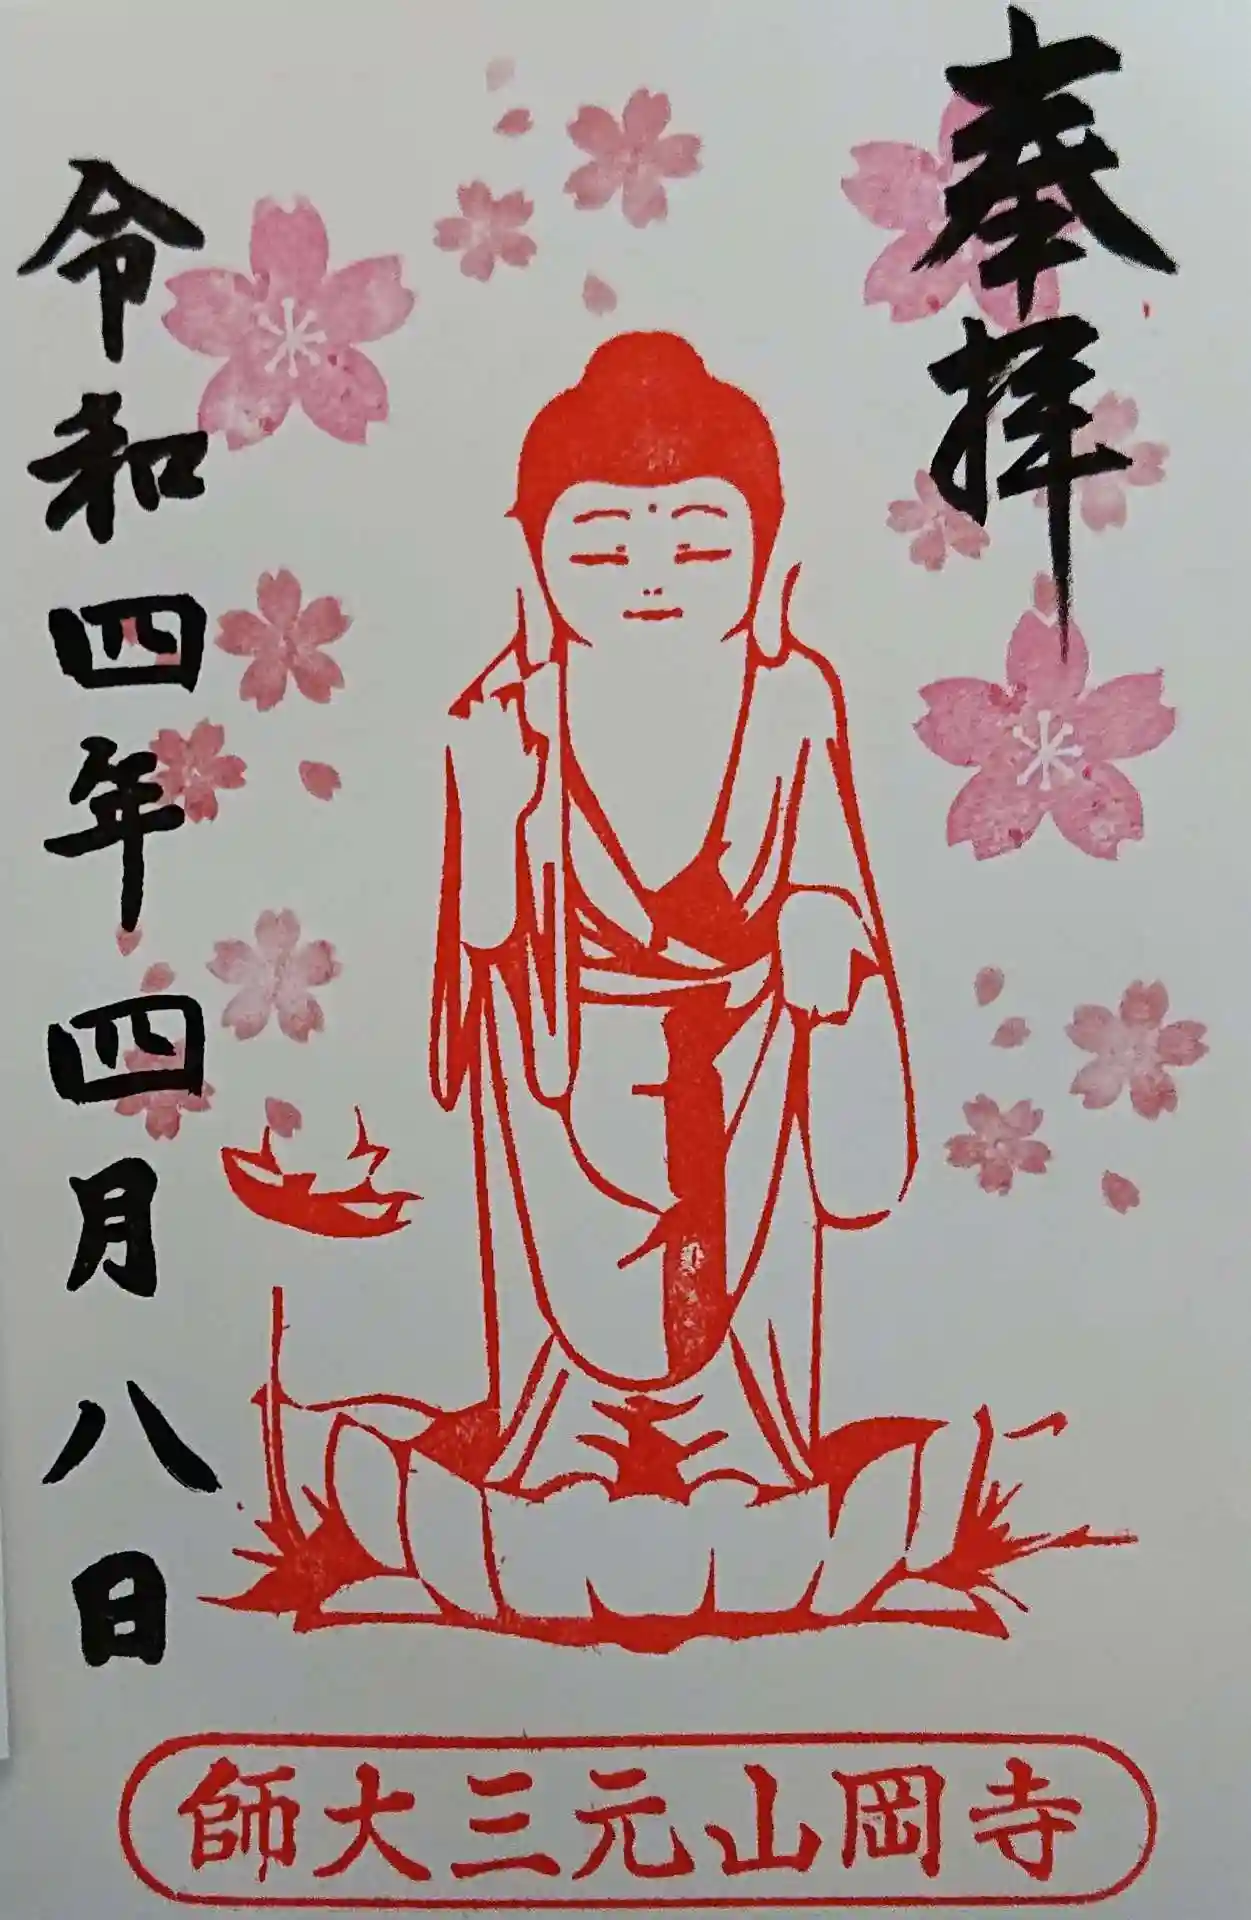 奉拝
令和四年四月八日
師大三元山岡寺